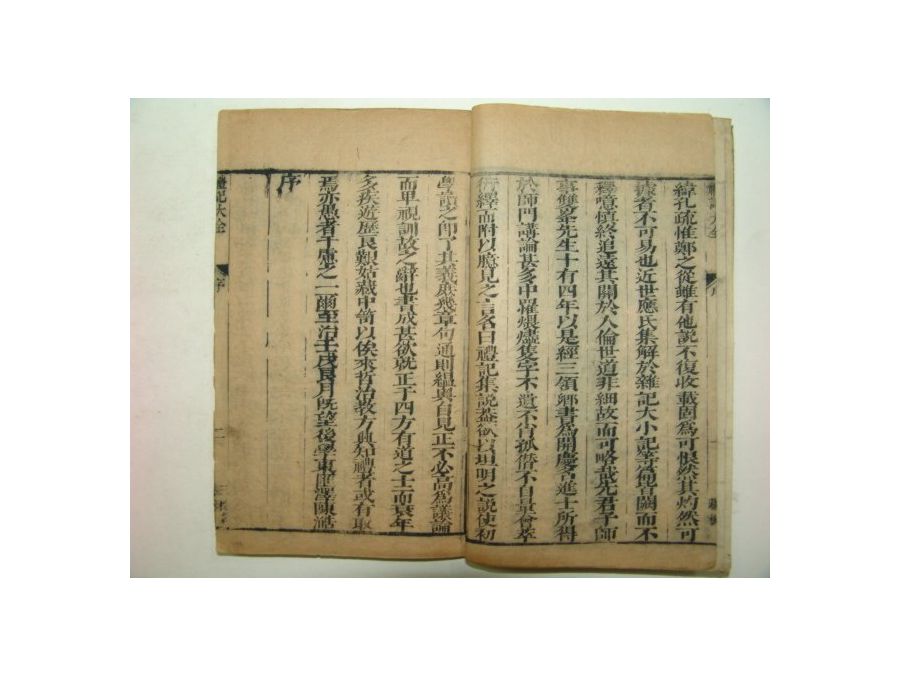 緯孔疏惟鄭之從雖有他說不復收載固爲可恨然其灼然可
據者不可易也近世應氏集解於雜記大小記等篇皆闕而不
釋噫愼終追遠其關於人倫世道非細故而可略哉先君子師
事雙峯先生十有四年以是經三領鄕書爲開慶名進士所得
於師門講論甚多中罹煨燼隻字不遺不肖孤僭不自量會萃
衍繹而附以臆見之言名曰禮記集說蓋欲以坦明之說使初
學讀之卽了其義庶幾章句通則縕奧自見正不必高爲議論
而卑視訓故之辭也書成甚欲就正于四方有道之士而衰年
多疾遊歷良艱姑藏巾笥以俟來哲治敎方興知禮者或有取
焉亦愚者千慮之一爾至治壬戌良月旣望後學東匯澤陳澔
序
禮記大全
序
二